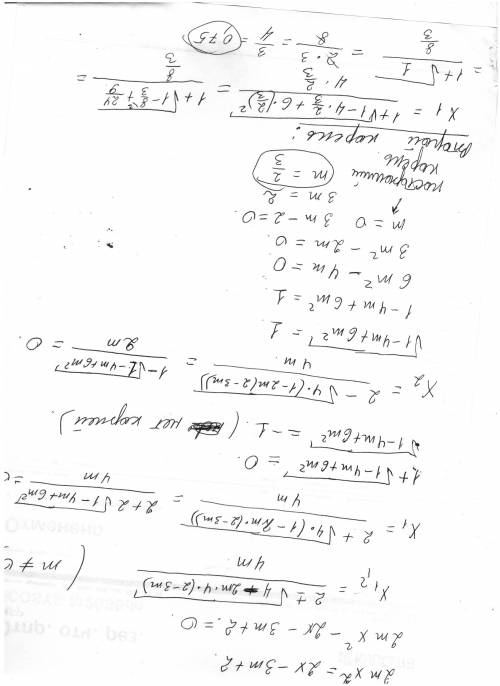 2mx² = 2x - 3m + 2
2mx² - 2x - 3m + 2 = 0
x₁,₂ = (2 ± √(4 - 2m·4·(2-3m))) / 4m (m ≠ 0
x₁ = (2 + √(4·(1-2m·(2-3m)))) / 4m = (2 + 2√(1-4m+6m²)) / 4m = 0
1 + √(1-4m+6m²) = 0
√(1-4m+6m²) = -1. (нет корней)
x₂ = (2 - √(4·(1-2m(2-3m)))) / 4m = (1 - √(1-4m+6m²)) / 2m = 0
√(1-4m+6m²) = 1
1 - 4m + 6m² = 1
6m² - 4m = 0
3m² - 2m = 0
m = 0 3m - 2 = 0.
3m = 2
посторонний m = 2/3
корень.
Второй корень:
x₁ = (1 + √(1 - 4·2/3 + 6·(2/3)²)) / (4·2/3) = (1 + √(1 - 8/3 + 24/9)) / (8/3) =
= (1 + √1) / (8/3) = 2·3/8 = 3/4 = 0,75